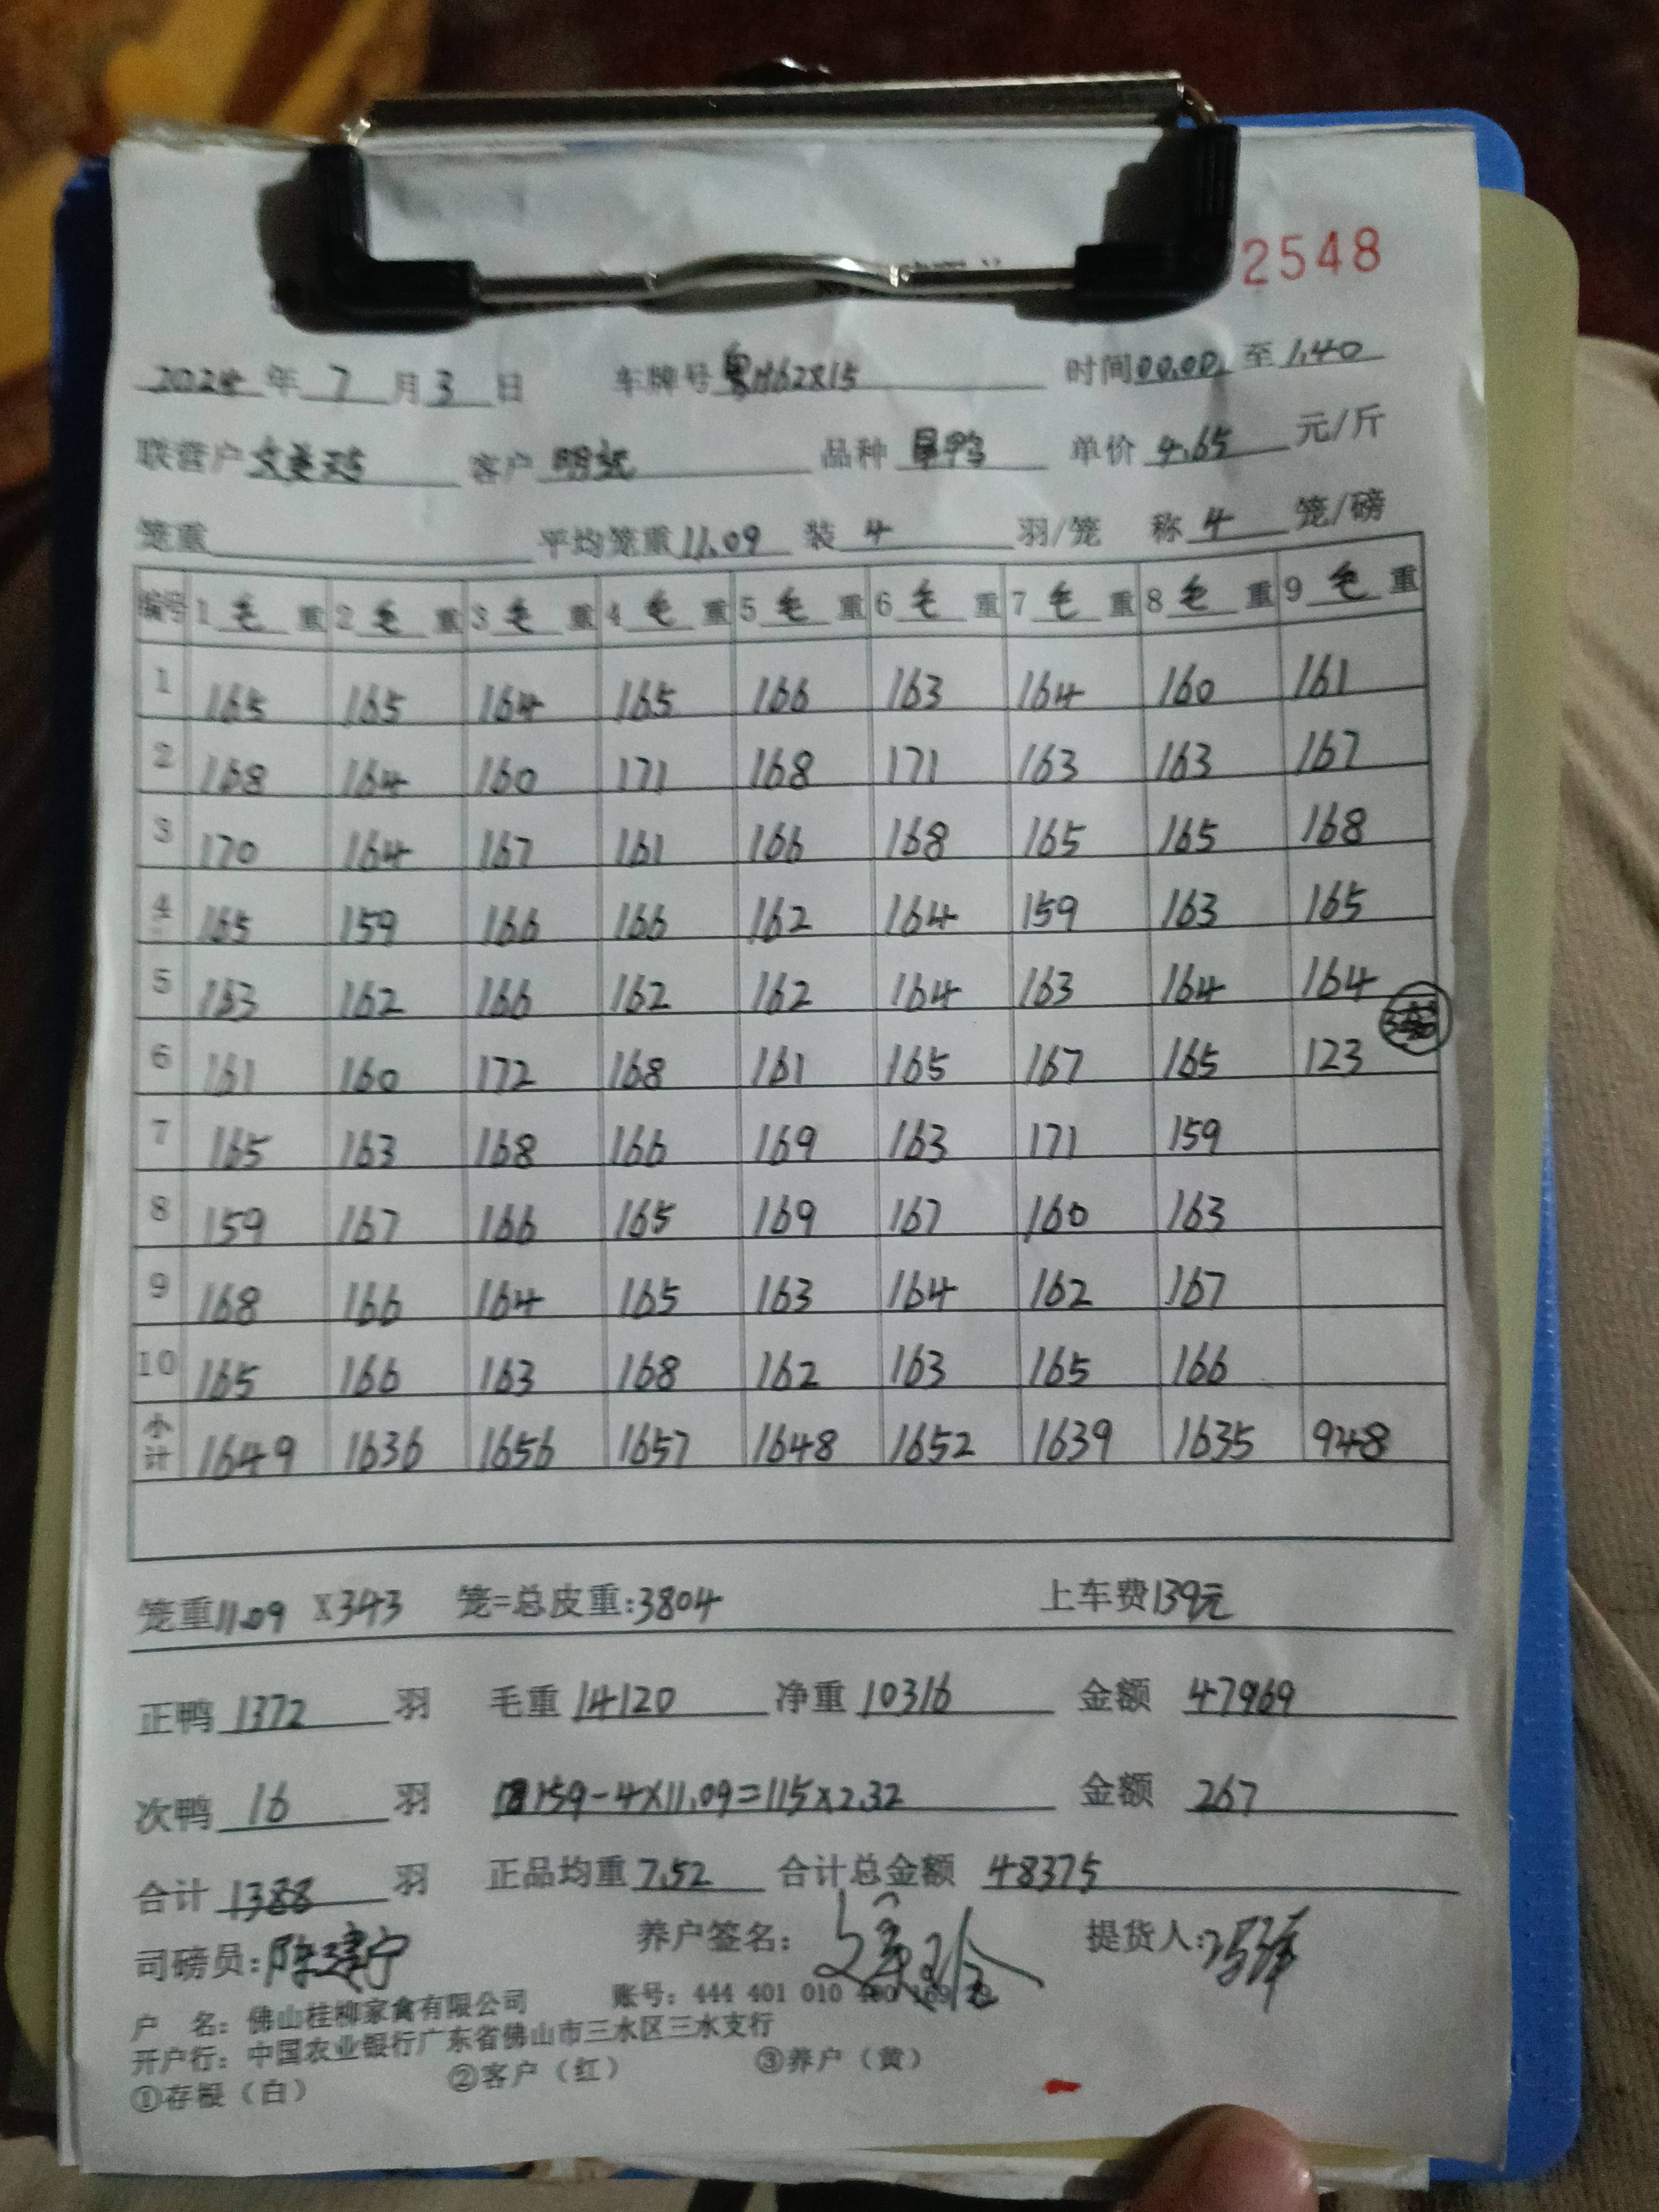 2548
2024年 7 月 3 日 车牌号 粤H62X15 时间 00.00 至 1.40
联营户 客户 明记 品种 旱鸭 单价 4.65 元/斤
笼重 平均笼重 11.09 装 4 羽/笼 称 4 笼/磅
编号 1 毛 重 2 毛 重 3 毛 重 4 毛 重 5 毛 重 6 毛 重 7 毛 重 8 毛 重 9 毛 重
1 165 165 164 165 166 163 164 160 161
2 168 164 160 171 168 171 163 163 167
3 170 164 167 161 166 168 165 165 168
4 165 159 166 166 162 164 159 163 165
5 163 162 166 162 162 164 163 164 164
6 161 160 172 168 161 165 167 165 123
7 165 163 168 166 169 163 171 159
8 159 167 166 165 169 167 160 163
9 168 166 164 165 163 164 162 167
10 165 166 163 168 162 163 165 166
小计 1649 1636 1656 1657 1648 1652 1639 1635 948
笼重 11.09 X343 笼=总皮重:3804 上车费139元
正鸭 1372 羽 毛重 14120 净重 10316 金额 47969
次鸭 16 羽 159-4X11.09=115x2.32 金额 267
合计 1388 羽 正品均重 7.52 合计总金额 48375
司磅员:陈建宁 养户签名: 提货人:
户 名: 佛山桂柳家禽有限公司 账号: 444 401 010 400
开户行: 中国农业银行广东省佛山市三水区三水支行
①存根(白) ②客户(红) ③养户(黄)